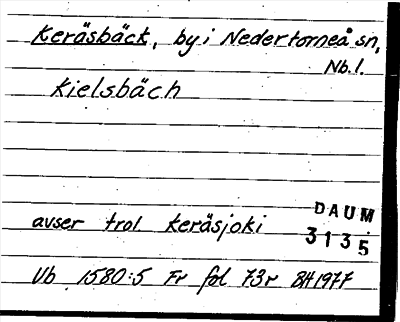 Keräsbäck, by i Nedertorneå sn,
Nb.l.
Kielsbäch
DAUM
avser trol. Keräsjoki
3135
Vb 1580:5 Fr fol 73r BH1977